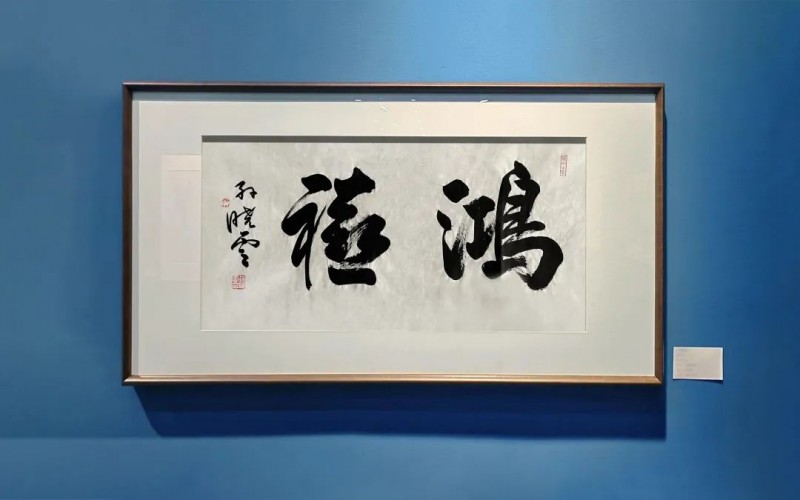 鸿禧
孙晓云